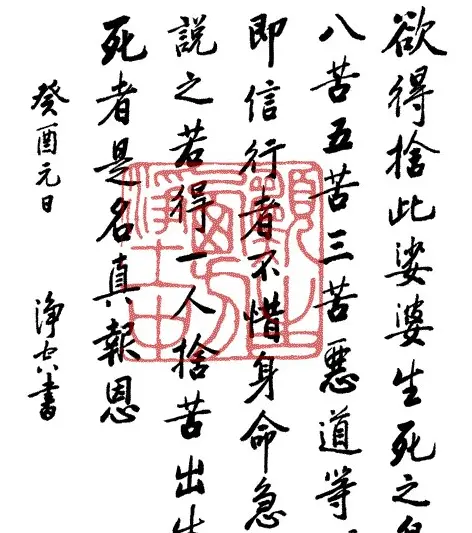 欲得捨此娑婆生死之
八苦五苦三苦惡道等
即信行者不惜身命急
說之若得一人捨苦出生
死者是名真報恩
癸酉元日 淨空書
願生
西方
淨土中